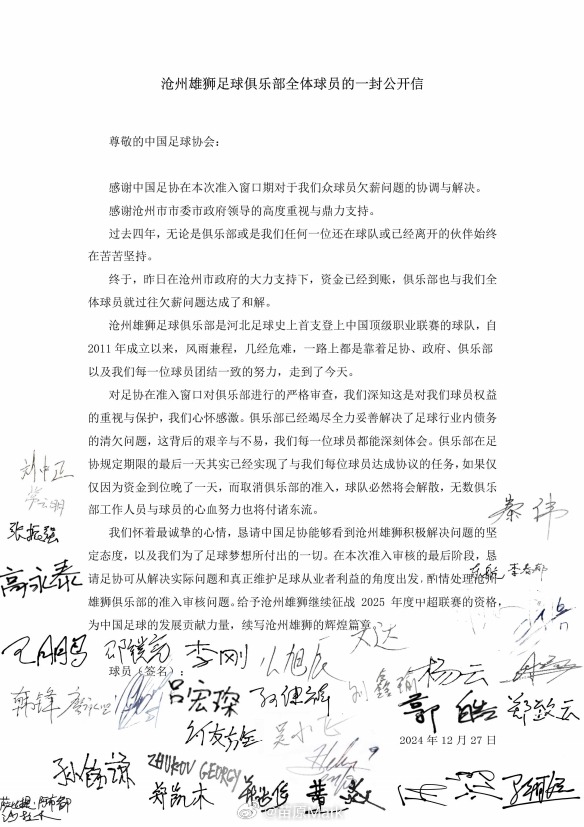 沧州雄狮足球俱乐部全体球员的一封公开信
尊敬的中国足球协会：
感谢中国足协在本次准入窗口期对于我们众球员欠薪问题的协调与解决。
感谢沧州市市委市政府领导的高度重视与鼎力支持。
过去四年，无论是俱乐部或是我们任何一位还在球队或已经离开的伙伴始终
在苦苦坚持。
终于，昨日在沧州市政府的大力支持下，资金已经到账，俱乐部也与我们全
体球员就过往欠薪问题达成了和解。
沧州雄狮足球俱乐部是河北足球史上首支登上中国顶级职业联赛的球队，自
2011年成立以来，风雨兼程，几经危难，一路上都是靠着足协、政府、俱乐部
以及我们每一位球员团结一致的努力，走到了今天。
对足协在准入窗口对俱乐部进行的严格审查，我们深知这是对我们球员权益
的重视与保护，我们心怀感激。俱乐部已经竭尽全力妥善解决了足球行业内债务
的清欠问题，这背后的艰辛与不易，我们每一位球员都能深刻体会。俱乐部在足
协规定期限的最后一天其实已经实现了与我们每位球员达成协议的任务，如果仅
仅因为资金到位晚了一天，而取消俱乐部的准入，球队必然将会解散，无数俱乐
部工作人员与球员的心血努力也将付诸东流。
我们怀着最诚挚的心情，恳请中国足协能够看到沧州雄狮积极解决问题的坚
定态度，以及我们为了足球梦想所付出的一切。在本次准入审核的最后阶段，恳
请足协可从解决实际问题和真正维护足球从业者利益的角度出发，酌情处理沧州
雄狮俱乐部的准入审核问题。给予沧州雄狮继续征战 2025 年度中超联赛的资格，
为中国足球的发展贡献力量，续写沧州雄狮的辉煌篇章。
球员（签名）：
2024 年 12 月 27 日
刘中正
张振强
高永泰
秦伟
王鹏
李刚
文达
韩锋
吕宏琛
孙健
刘鑫瑜
杨云
郭皓
郑致云
吴小飞
ZHUKOV GEORGY
郑凯木
@苗原Mark